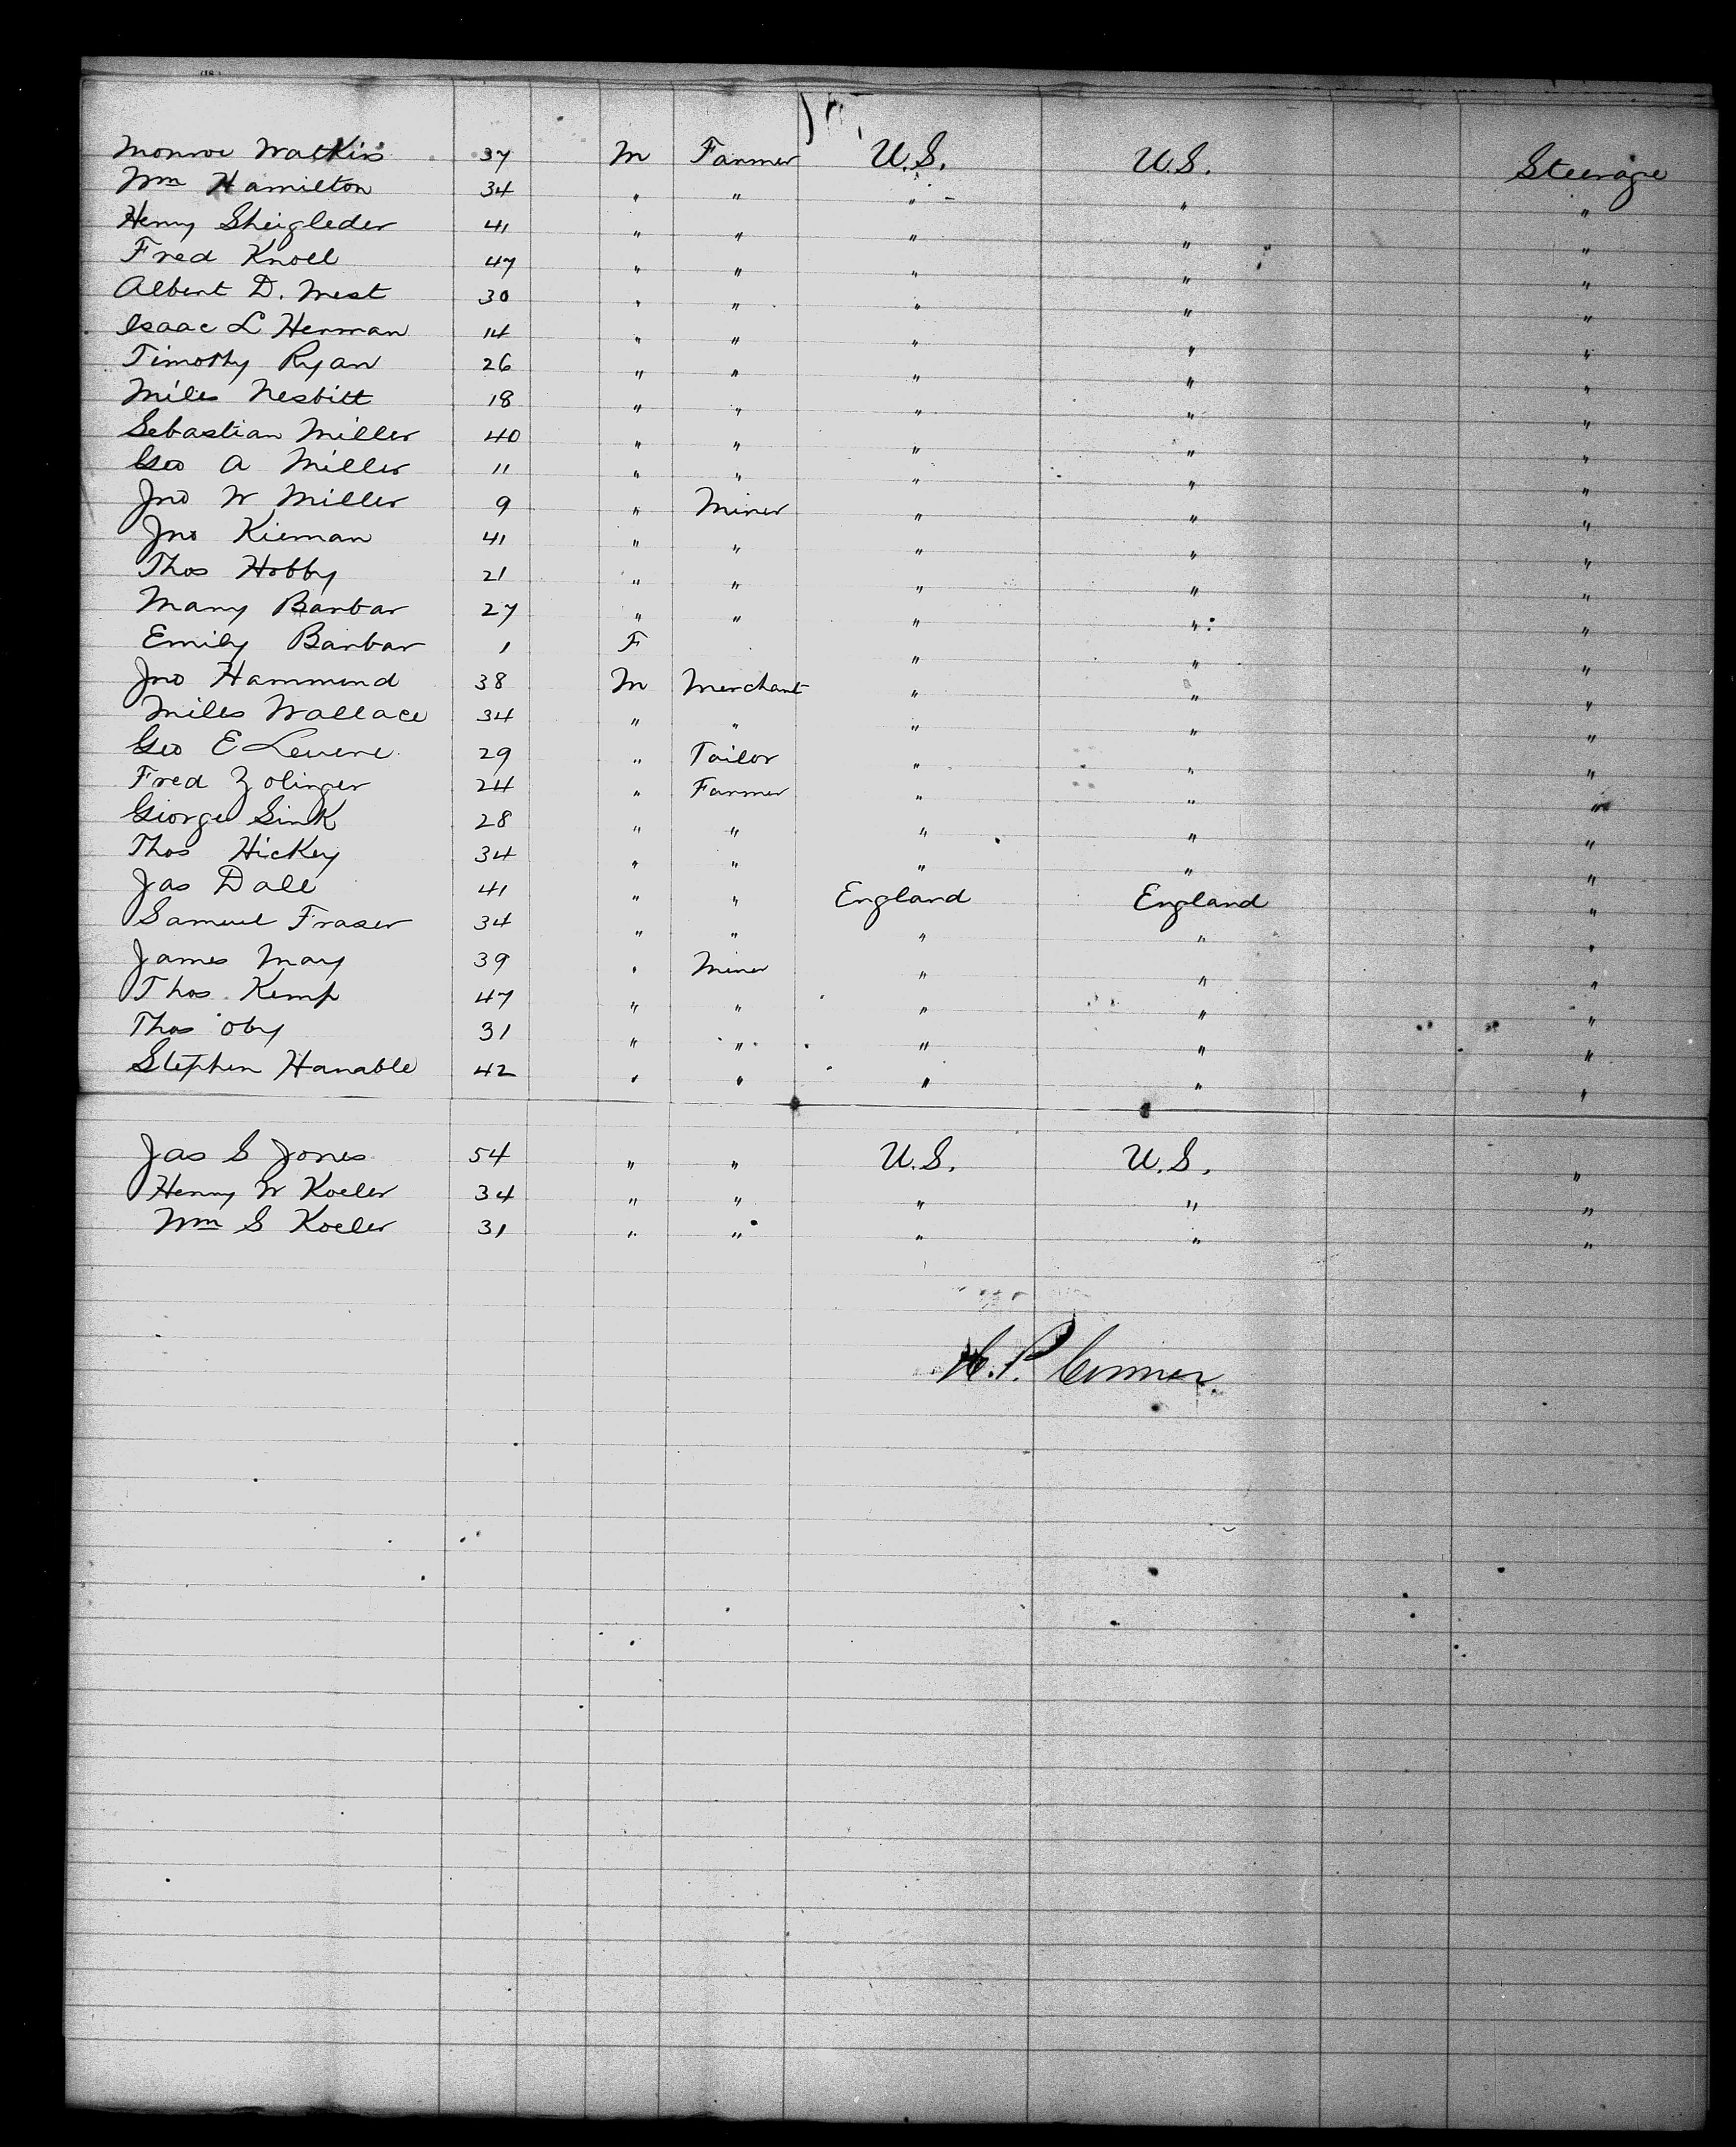 Monroe Watkins 37 M Farmer U.S. U.S. Steerage
Wm Hamilton 34 " " " " "
Henry Sheigleder 41 " " " " "
Fred Knoll 47 " " " " "
Albert D. West 30 " " " " "
Isaac L Herman 14 " " " " "
Timothy Ryan 26 " " " " "
Miles Nesbitt 18 " " " " "
Sebastian Miller 40 " " " " "
Geo A Miller 11 " " " " "
Jno W Miller 9 " Miner " " "
Jno Kiernan 41 " " " " "
Thos Hobby 21 " " " " "
Mary Barbar 27 " " " " "
Emily Barbar 1 F " " "
Jno Hammond 38 M Merchant " " "
Miles Wallace 34 " " " " "
Geo E Levene 29 " Tailor " " "
Fred Zolinger 24 " Farmer " " "
George Sink 28 " " " " "
Thos Hickey 34 " " " " "
Jas Dale 41 " " England England "
Samuel Fraser 34 " " " " "
James May 39 " Miner " " "
Thos Kemp 47 " " " " "
Thos Oby 31 " " " " "
Stephen Hanable 42 " " " " "
Jas S Jones 54 " " U.S. U.S. "
Henry W Koeler 34 " " " " "
Wm S Koeler 31 " " " " "
P. Connor